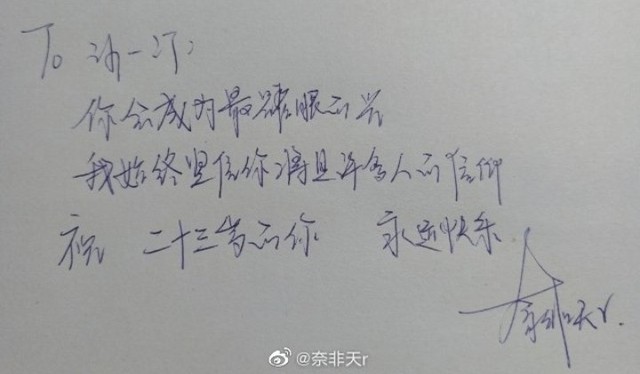 To 许一汀:
你会成为最耀眼的光
我始终坚信你将是许多人的信仰
祝 二十三岁的你 永远快乐
奈非天r.
@奈非天r